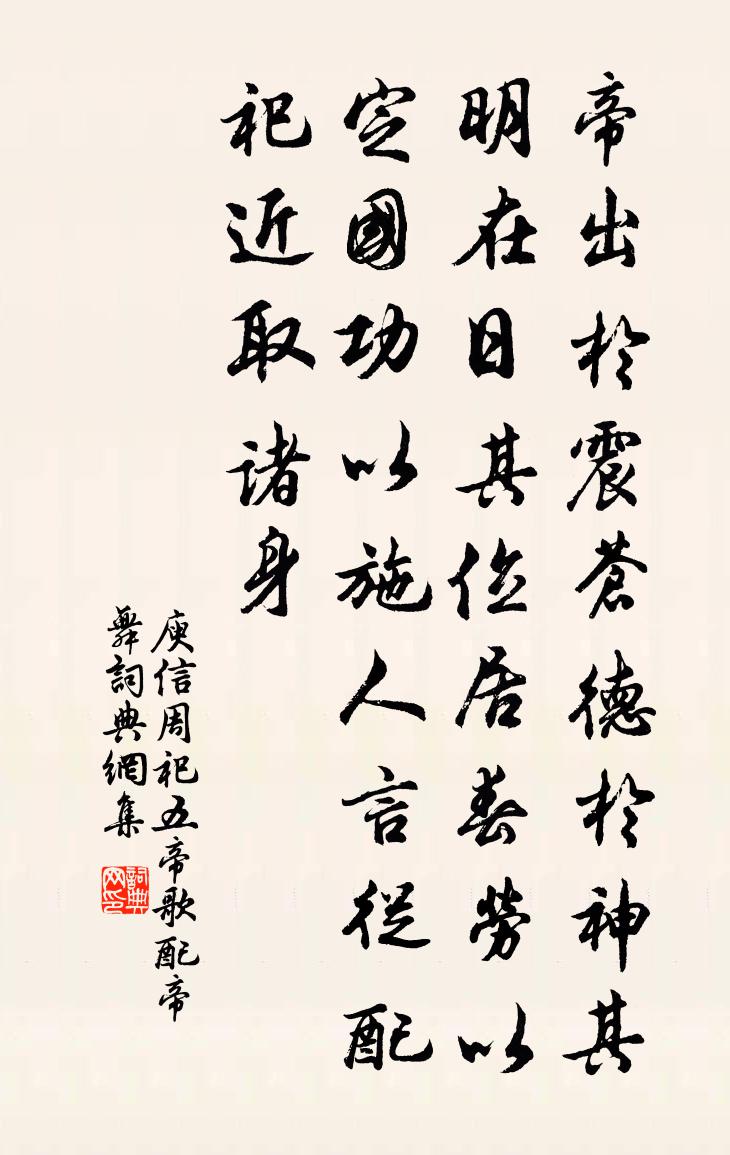 帝出於震蒼德於神其
明在日其位居春勞以
定國功以施人言從配
祀近取諸身
庾信周祀五帝歌配帝
舞詞典網集
詞典
网印